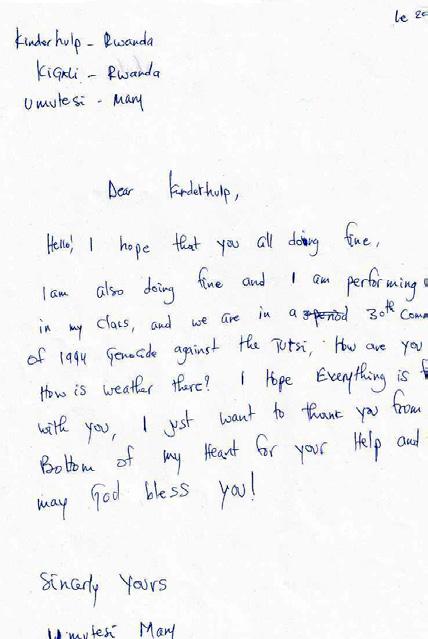 Le 20
Kinderhulp - Rwanda
KiGALi - Rwanda
Umutesi - Mary
Dear Kinderhulp,
Hello! I hope that you all doing fine,
I am also doing fine and I am performing
in my class, and we are in a 30th Comm
of 1994 Genocide against the Tutsi, How are you
How is weather there? I Hope Everything is f
with you, I just want to thank you from
Bottom of my Heart for your Help and
may God bless you!
Sincerly Yours
Umutesi Mary